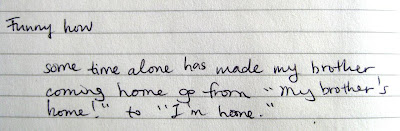 Funny how
some time alone has made my brother
coming home go from "my brother's
home!" to "I'm home."